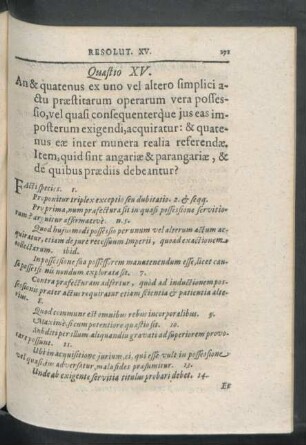 RESOLUT. XV.
Quæstio XV.
An & quatenus ex uno vel altero simplici a-
ctu præstitarum operarum vera posses-
sio, vel quasi consequenterque jus eas im-
posterum exigendi, acquiratur: & quate-
nus eæ inter munera realia referendæ.
Item, quid sint angariæ & parangariæ, &
de quibus prædiis debeantur?
Facti species. 1.
Proponitur triplex exceptio seu dubitatio. 2. & seqq.
Pr: prima, num præfectura sit in quasi possessione servitio-
rum & arguitur affirmativè. 5.
Quod hujusmodi possessio per unum vel alterum actum ac-
quiratur, etiam de jure recessuum Imperii, quoad exactionem
ibid.
In possessione sua possessorem manutenendum esse, licet cau-
sa possessionis nondum explorata sit. 7.
Contra præfecturam adfertur, quod ad inductionem pos-
sessionis præter actus requiratur etiam scientia & patientia alte-
rius. 8.
Quod commune est omnibus rebus incorporalibus. 9.
Maximè si cum potentiore quæstio sit. 10.
An diti per illum aliquandiu gravati ad superiorem provo-
care possunt. 11.
Ubi in acquisitione jurium ei, qui esse vult in possessione
vel quasi adversetur, mala fides præsumitur. 13.
Unde ab exigente servitia titulus probari debet. 14.
Et